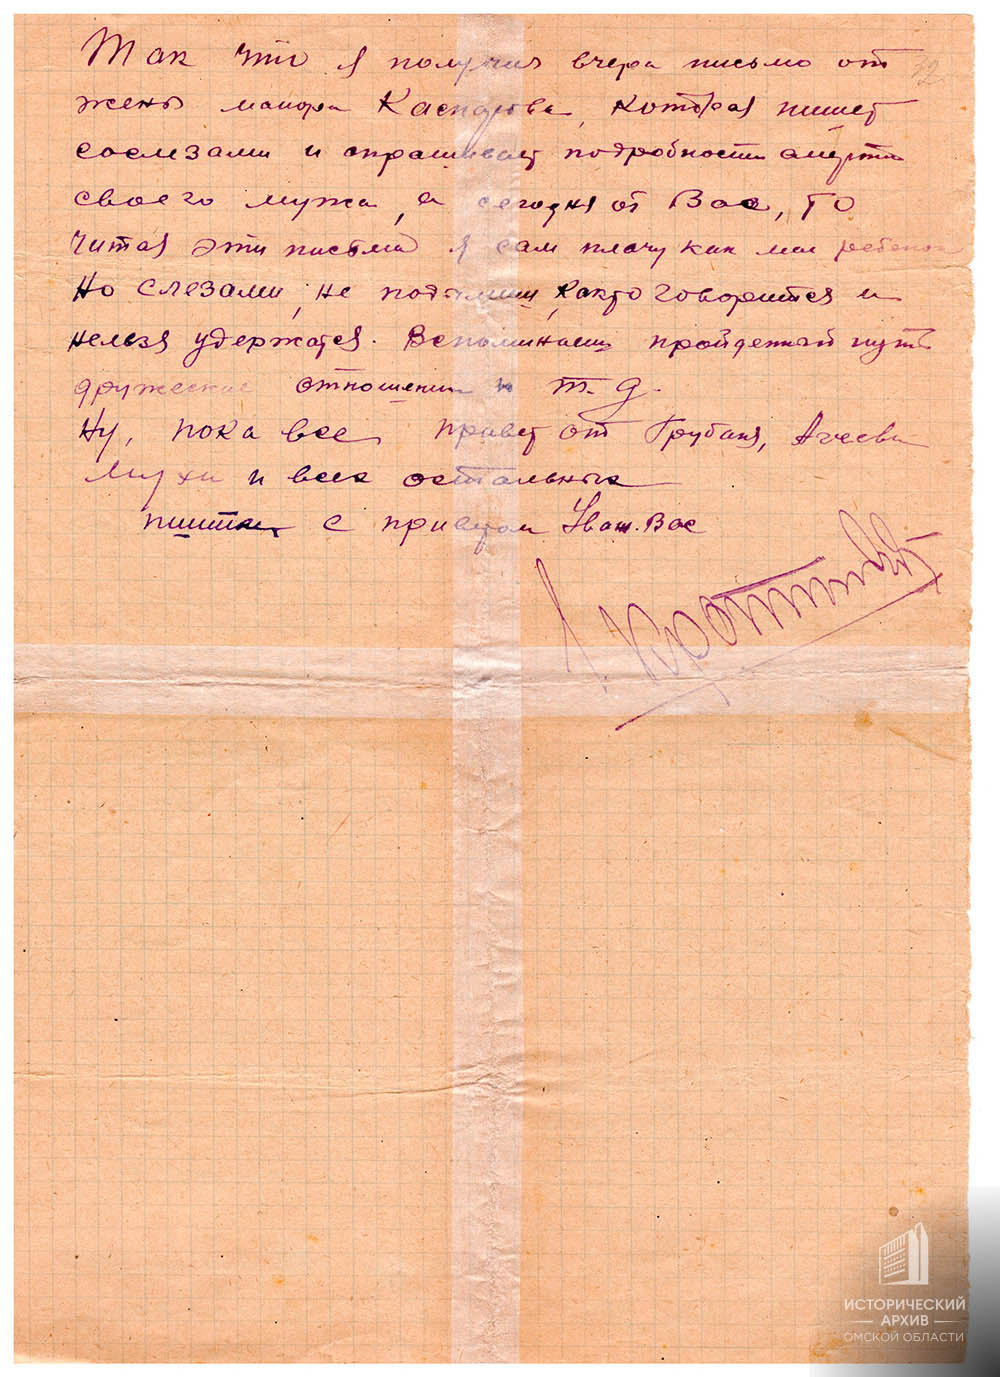 Так что я получил вчера письмо от
32
жены майора Каспарова, которая пишет
сослезами и спрашивает подробности смерти
своего мужа, а сегодня от Вас, то
читая эти письма я сам плачу как мал ребенок
Но слезами, не подымиш, както говорится и
нельзя удержатся. Вспоминаеш пройденный путь
дружеские отношения и т.д.
Ну, пока все привет от Грубаня, Агеева
Мухи и всех остальных
пишите с приветом Уваж. Вас